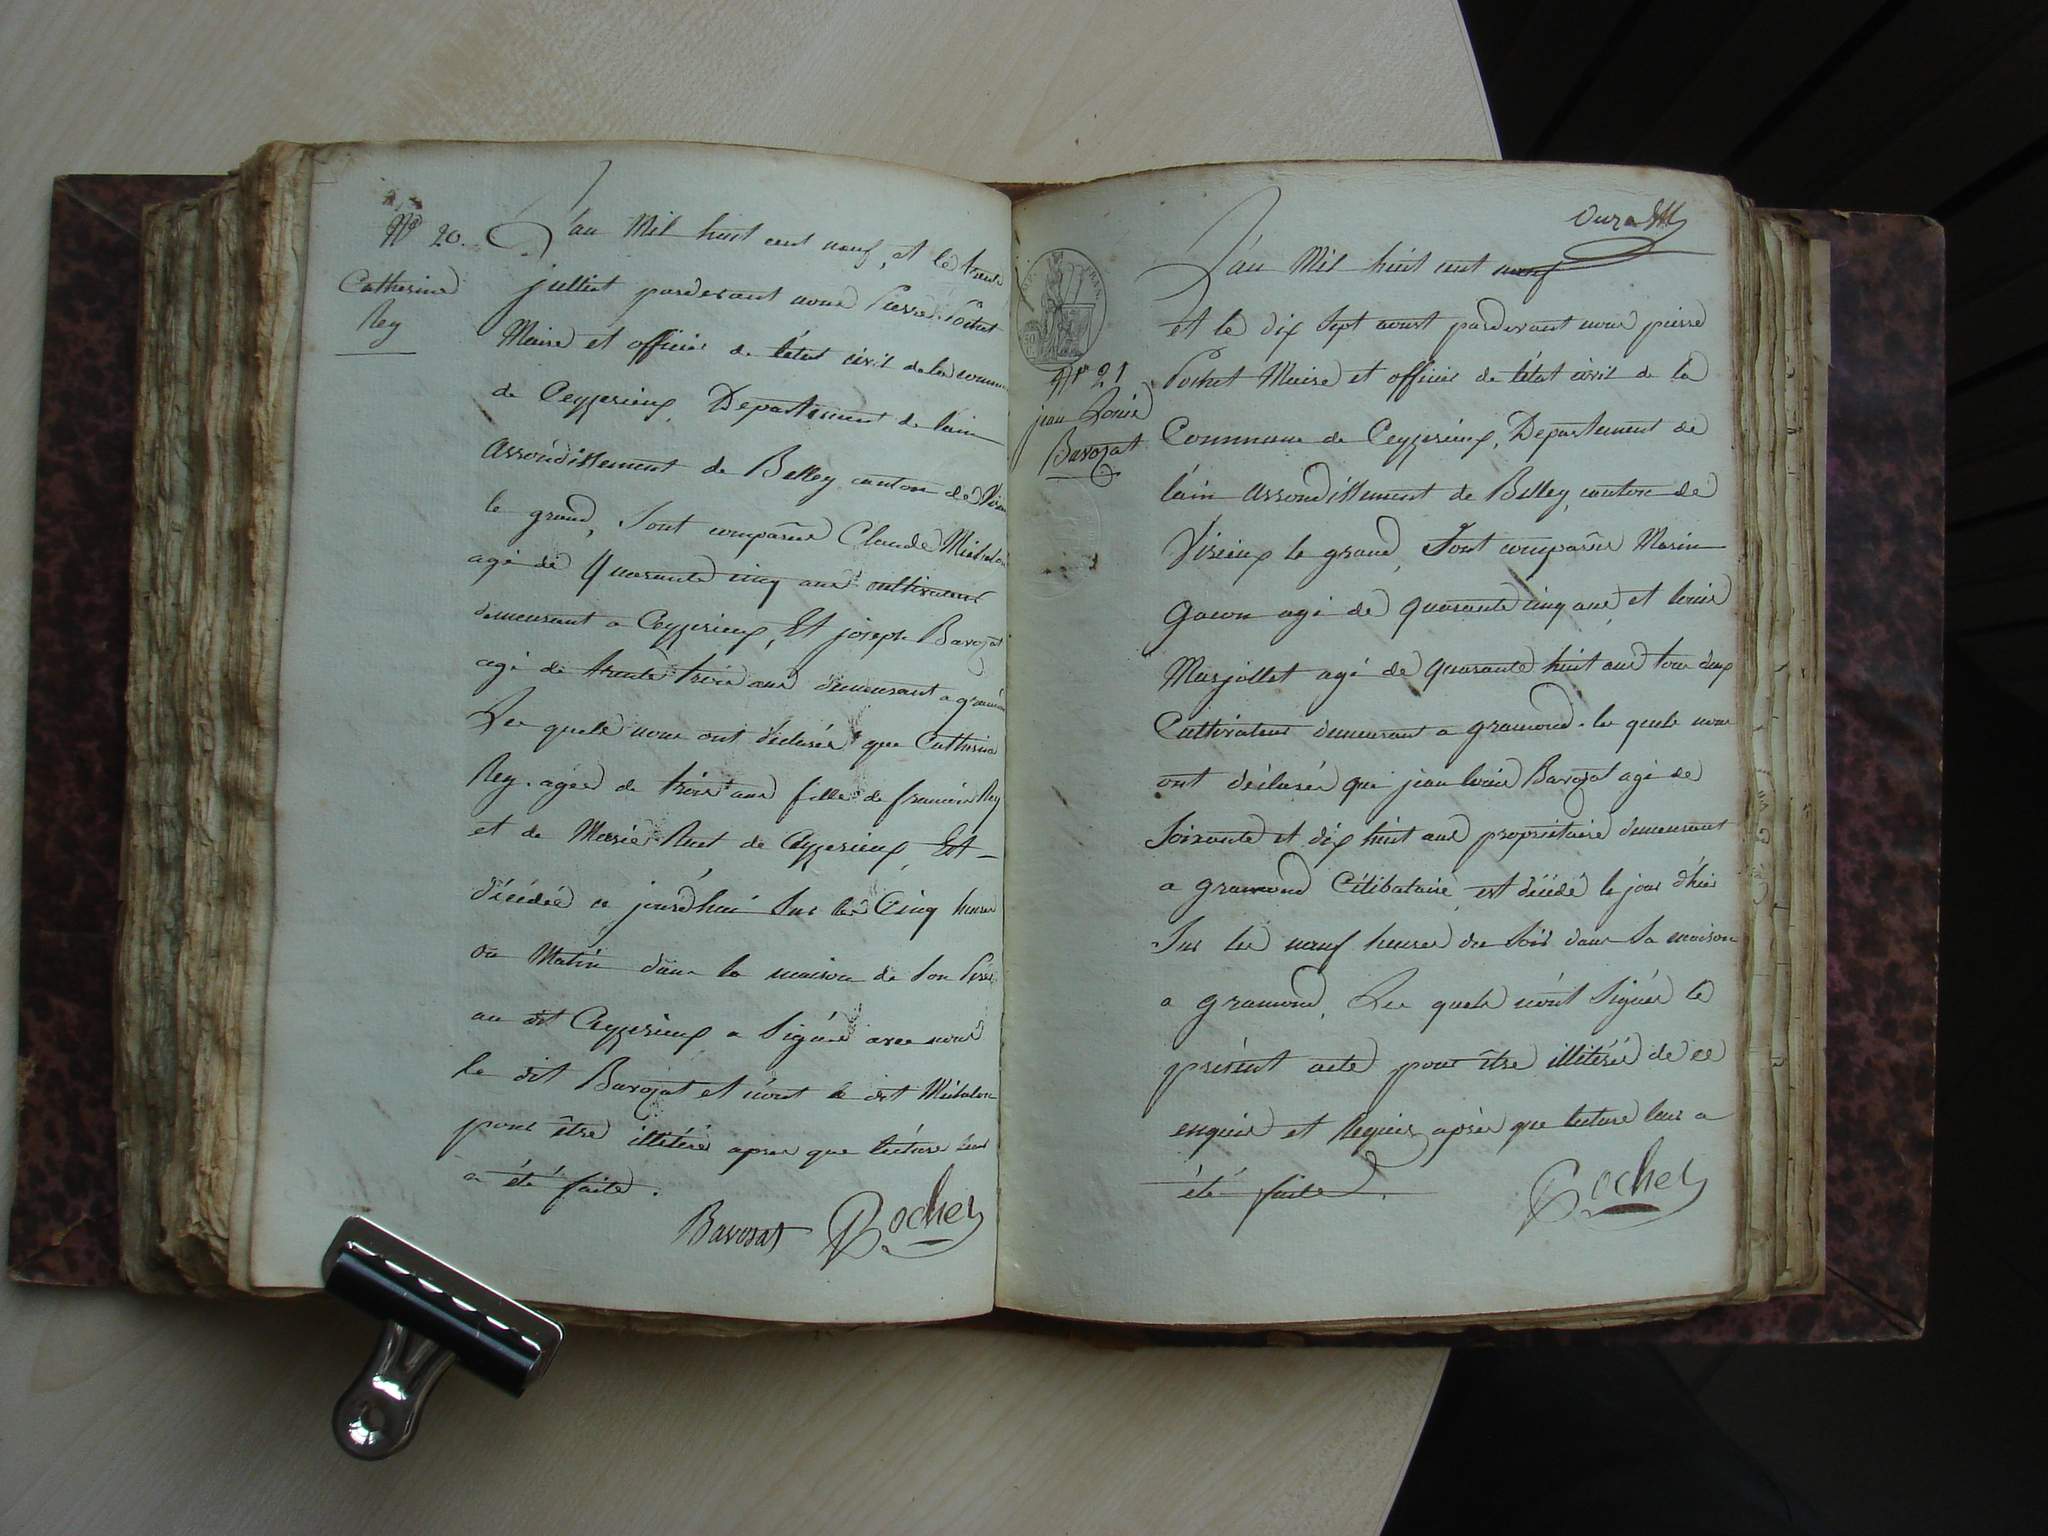 N.° 20.
Catherine
Rey
L'an Mil huit cent neuf, et le trente
juillet pardevant nous Pierre Pochet
Maire et officier de l'état civil de la commune
de Ceyzerieux, Departement de lain
arrondissement de Belley canton de
le grand, Sont comparûs Claude
agé de Quarante cinq ans cultivateur
demeurant a Ceyzerieux, Et joseph Bavozat
agé de trente trois ans demeurant a
Les quels nous ont déclarés que Catherine
Rey. agée de trois ans fille de francois Rey
et de Marie de Ceyzerieux, Est
décédée ce jourdhui Sur les Cinq heures
du Matin dans la maison de Son Pere
au dit Ceyzerieux a Signé avec nous
le dit Bavozat et non le dit
pour être illitéré apres que lecture leur
a été faite.
Bavozat Pochet
N.° 21
jean Louis
Bavozat
L'an Mil huit cent neuf
et le dix Sept aoust pardevant nous pierre
Pochet Maire et officier de l'état civil de la
Commune de Ceyzerieux, Departement de
lain arrondissement de Belley, canton de
Virieux le grand, Sont comparûs Marin
Gacon agé de quarante cinq ans, et louis
Marjollet agé de quarante huit ans tous deux
Cultivateurs demeurant a gramond. les quels nous
ont déclarés que jean louis Bavozat agé de
Soixante et dix huit ans propriétaire demeurant
a gramond Célibataire, est décédé le jour d'hier
Sur les neuf heures du Soir dans Sa maison
a gramond, Les quels n'ont Signés le
présent acte pour être illitérés de ce
enquis et Requis après que lecture leur a
été faite.
Pochet